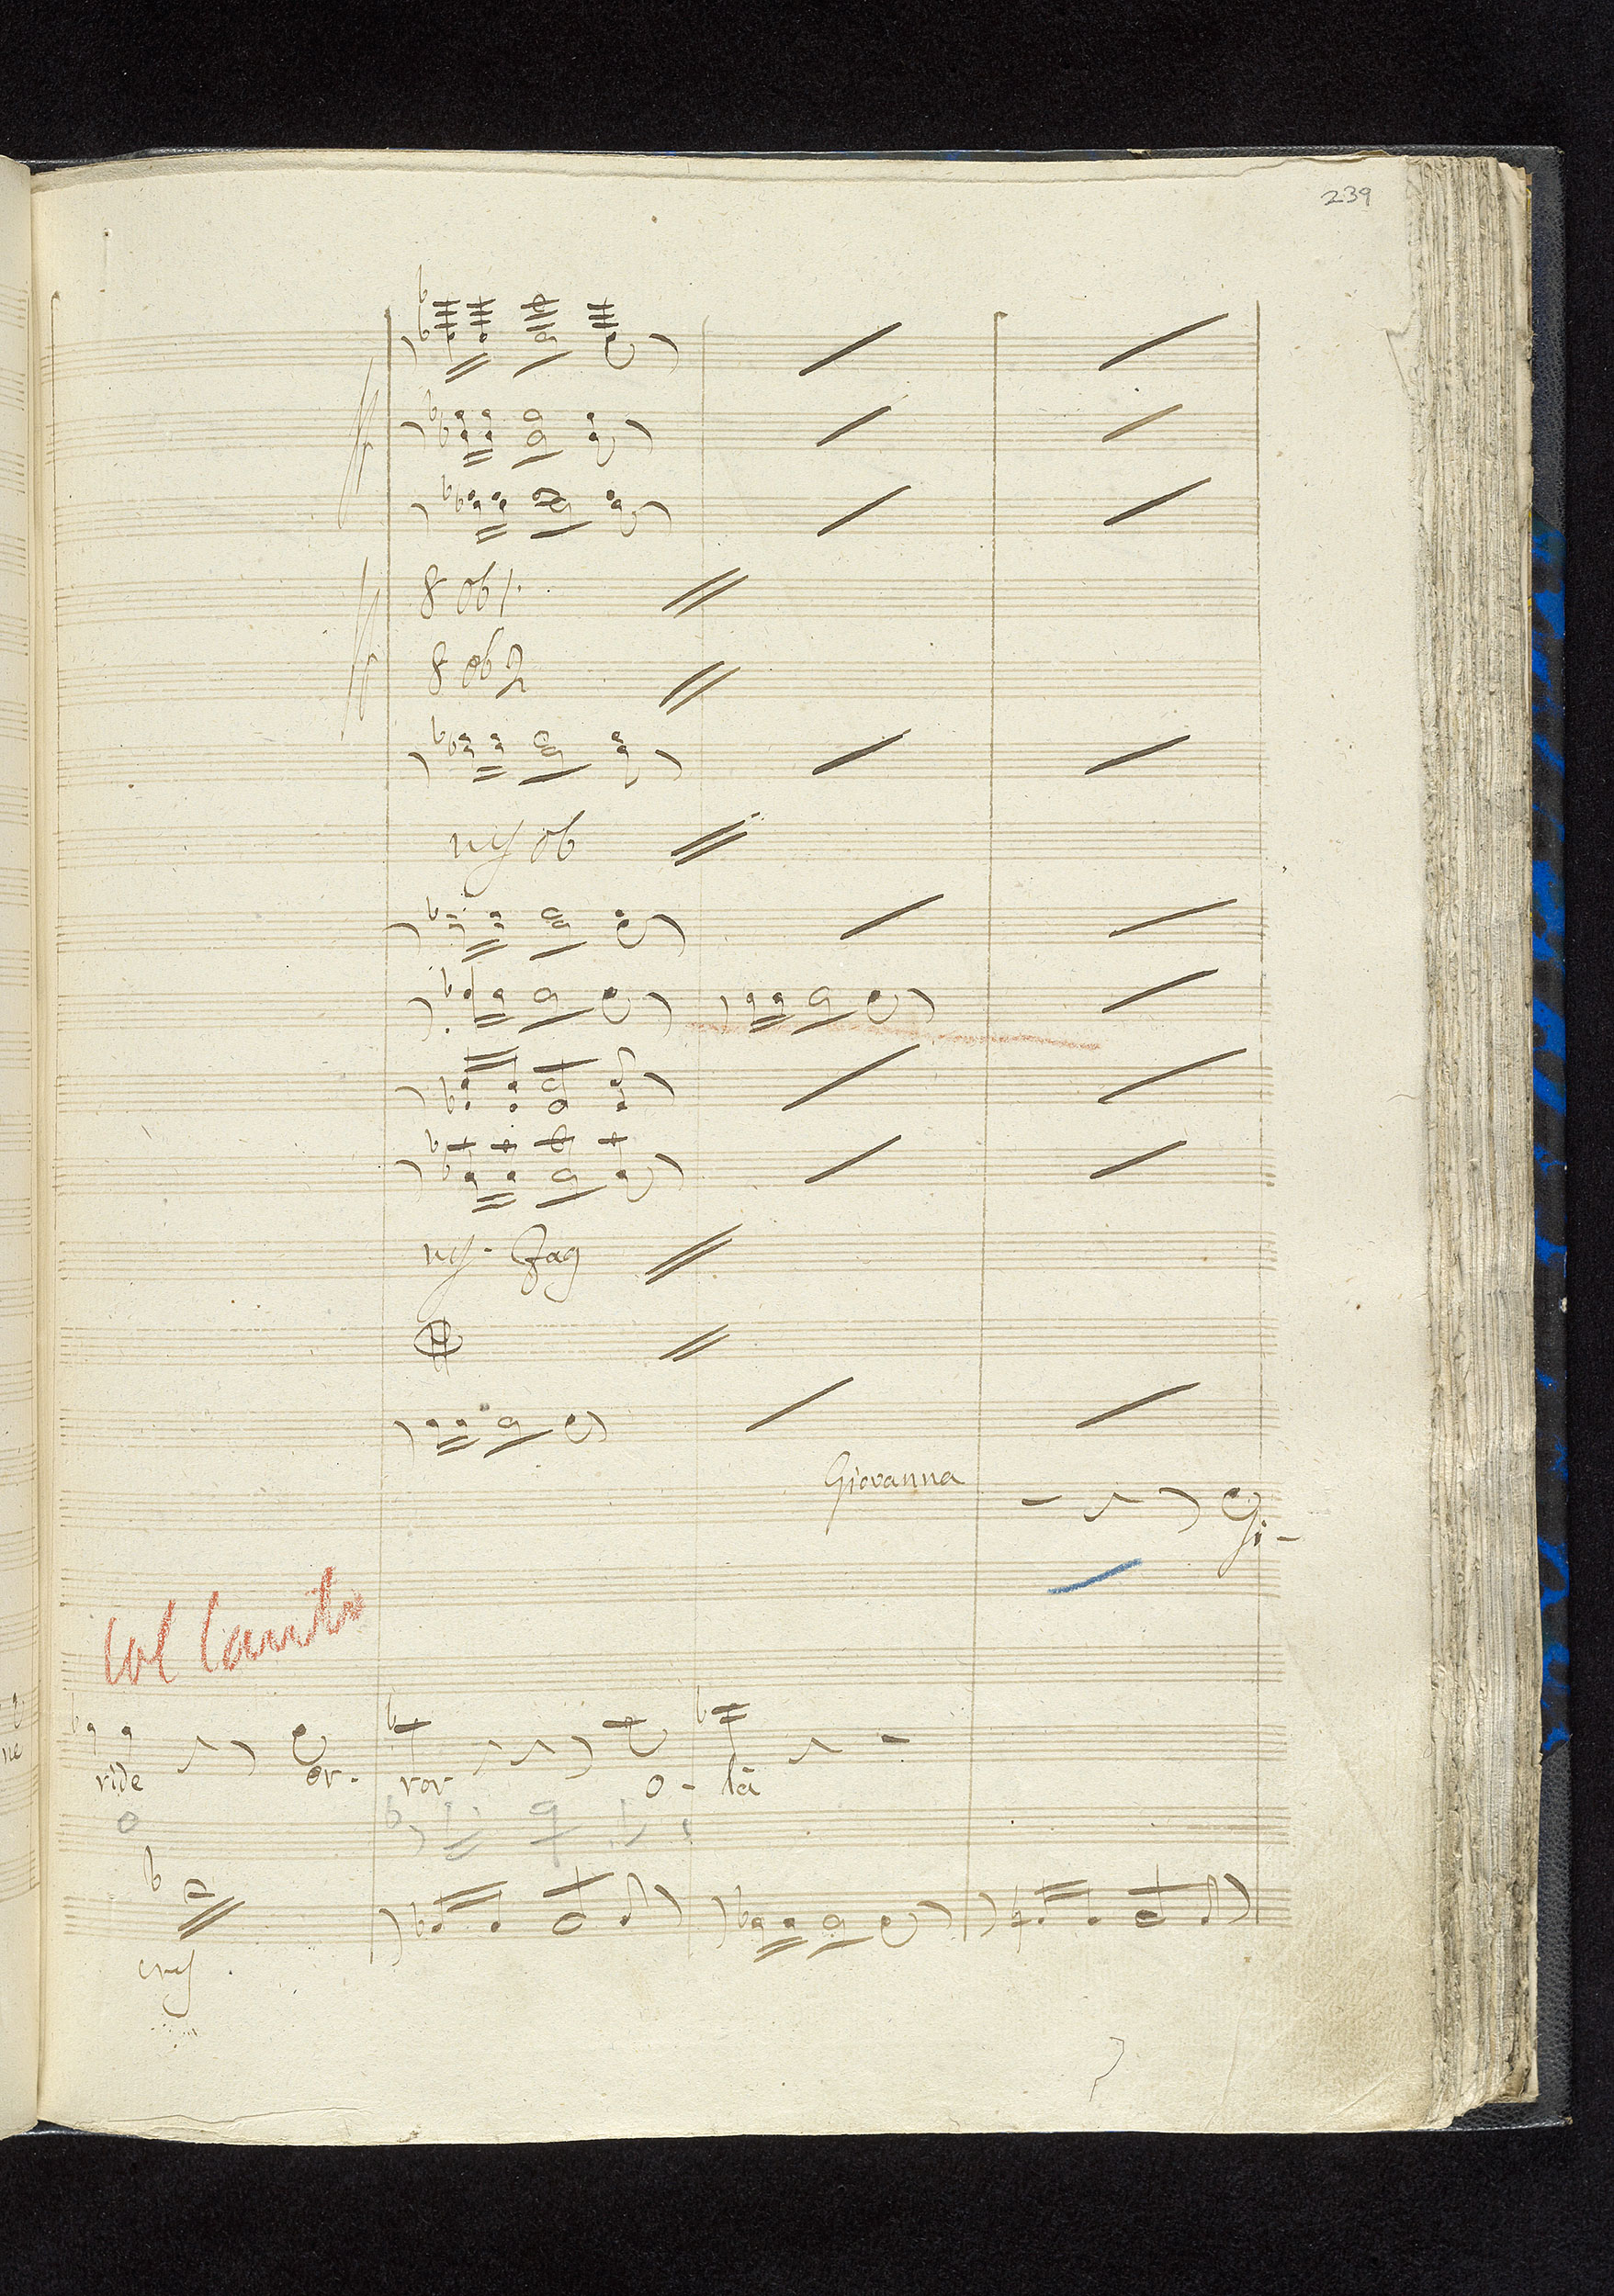 239
8 ob 1.
8 ob 2
ung ob
ung. Fag
Giovanna
Gi-
Col Canto
ne
ride or- ror o- là
ung.